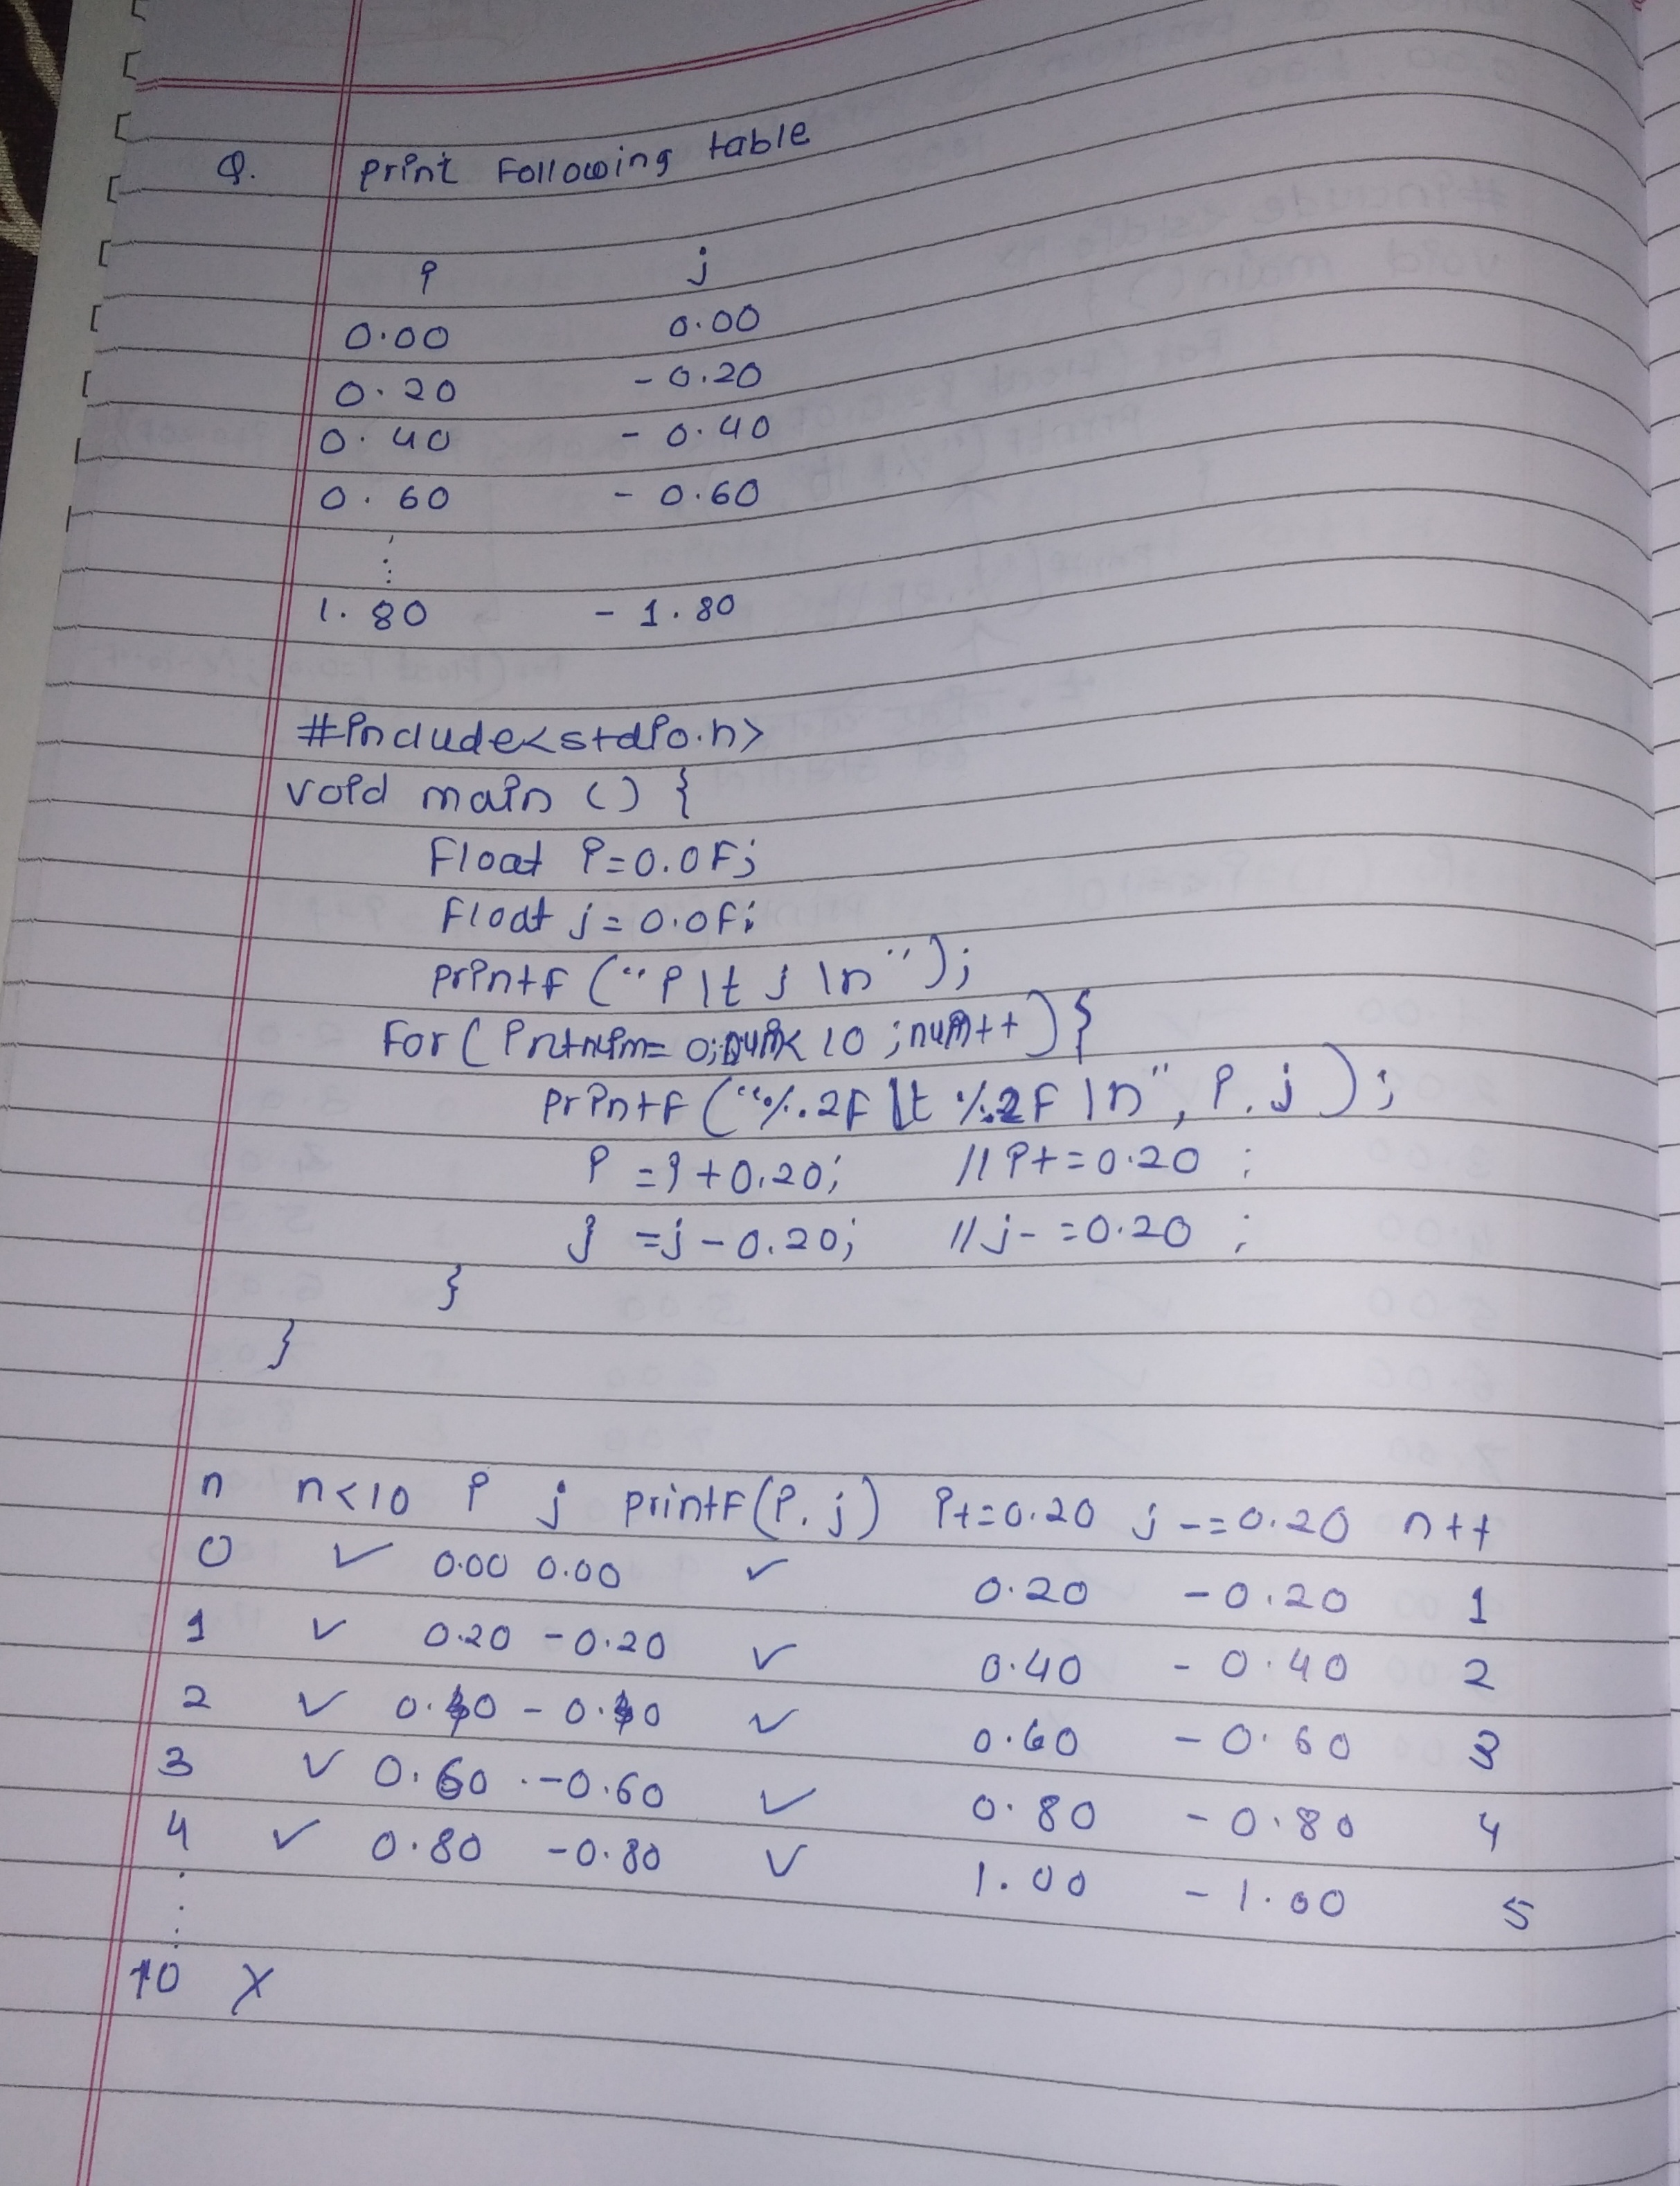 Q. Print Following table
i j
0.00 0.00
0.20 -0.20
0.40 -0.40
0.60 -0.60
⋮
1.80 -1.80
#include<stdio.h>
void main () {
Float i=0.0F;
Float j=0.0f;
printf ("i\t j \n");
For( int num= 0;num< 10 ;num++){
printF ("%.2F \t %.2F \n", i, j );
i =i+0.20; //i+=0.20 ;
j =j-0.20; //j-=0.20 ;
}
}
n n<10 i j printF(i, j) i+=0.20 j-=0.20 n++
0 ✓ 0.00 0.00 ✓ 0.20 -0.20 1
1 ✓ 0.20 -0.20 ✓ 0.40 -0.40 2
2 ✓ 0.40 -0.40 ✓ 0.60 -0.60 3
3 ✓ 0.60 -0.60 ✓ 0.80 -0.80 4
4 ✓ 0.80 -0.80 ✓ 1.00 -1.00 5
⋮
10 X